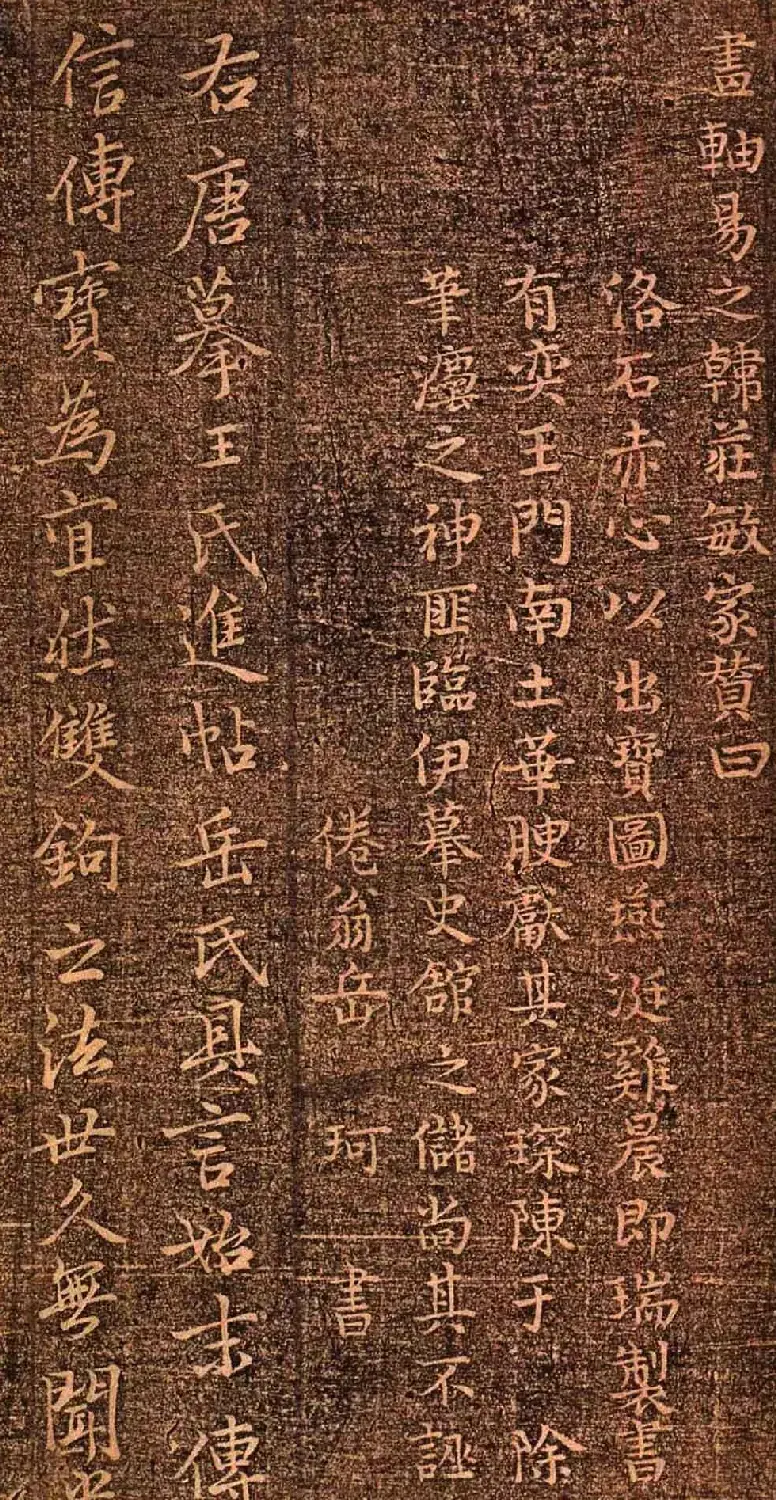 畫軸易之韓莊敏家贊曰
洛石赤心以出寶圖燕涎雞晨即瑞製書
有奕王門南土華腴獻其家琛陳于 除
筆瀼之神匪臨伊摹史館之儲尚其不誣
倦翁岳 珂 書
右唐摹王氏進帖岳氏具言始末傳
信傳寶為宜然雙鉤之法世久無聞